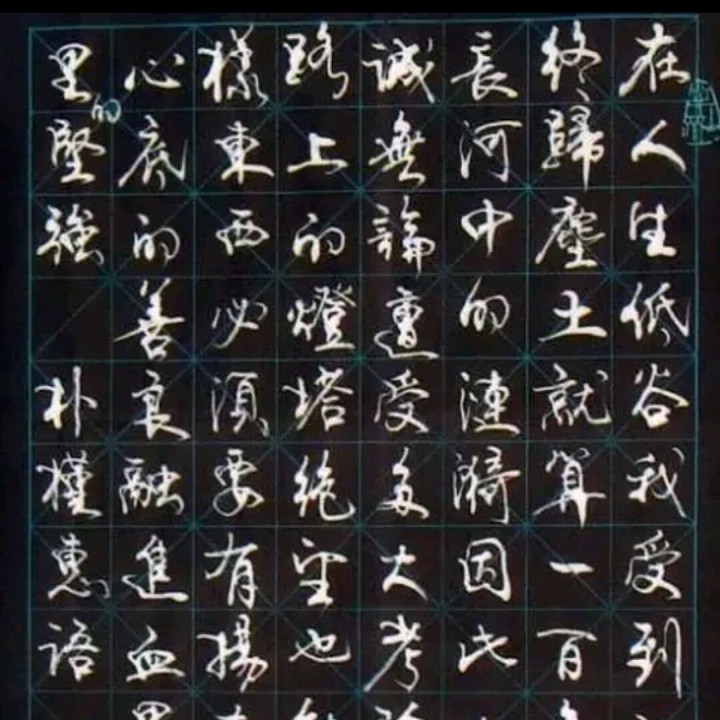 在人生低谷我受到
終歸塵土就算一百
長河中的漣漪因此
誠無論遭受多大考
路上的燈塔絕望也
樣東西必須要有揚
心底的善良融進血
里的堅強 朴槿惠语